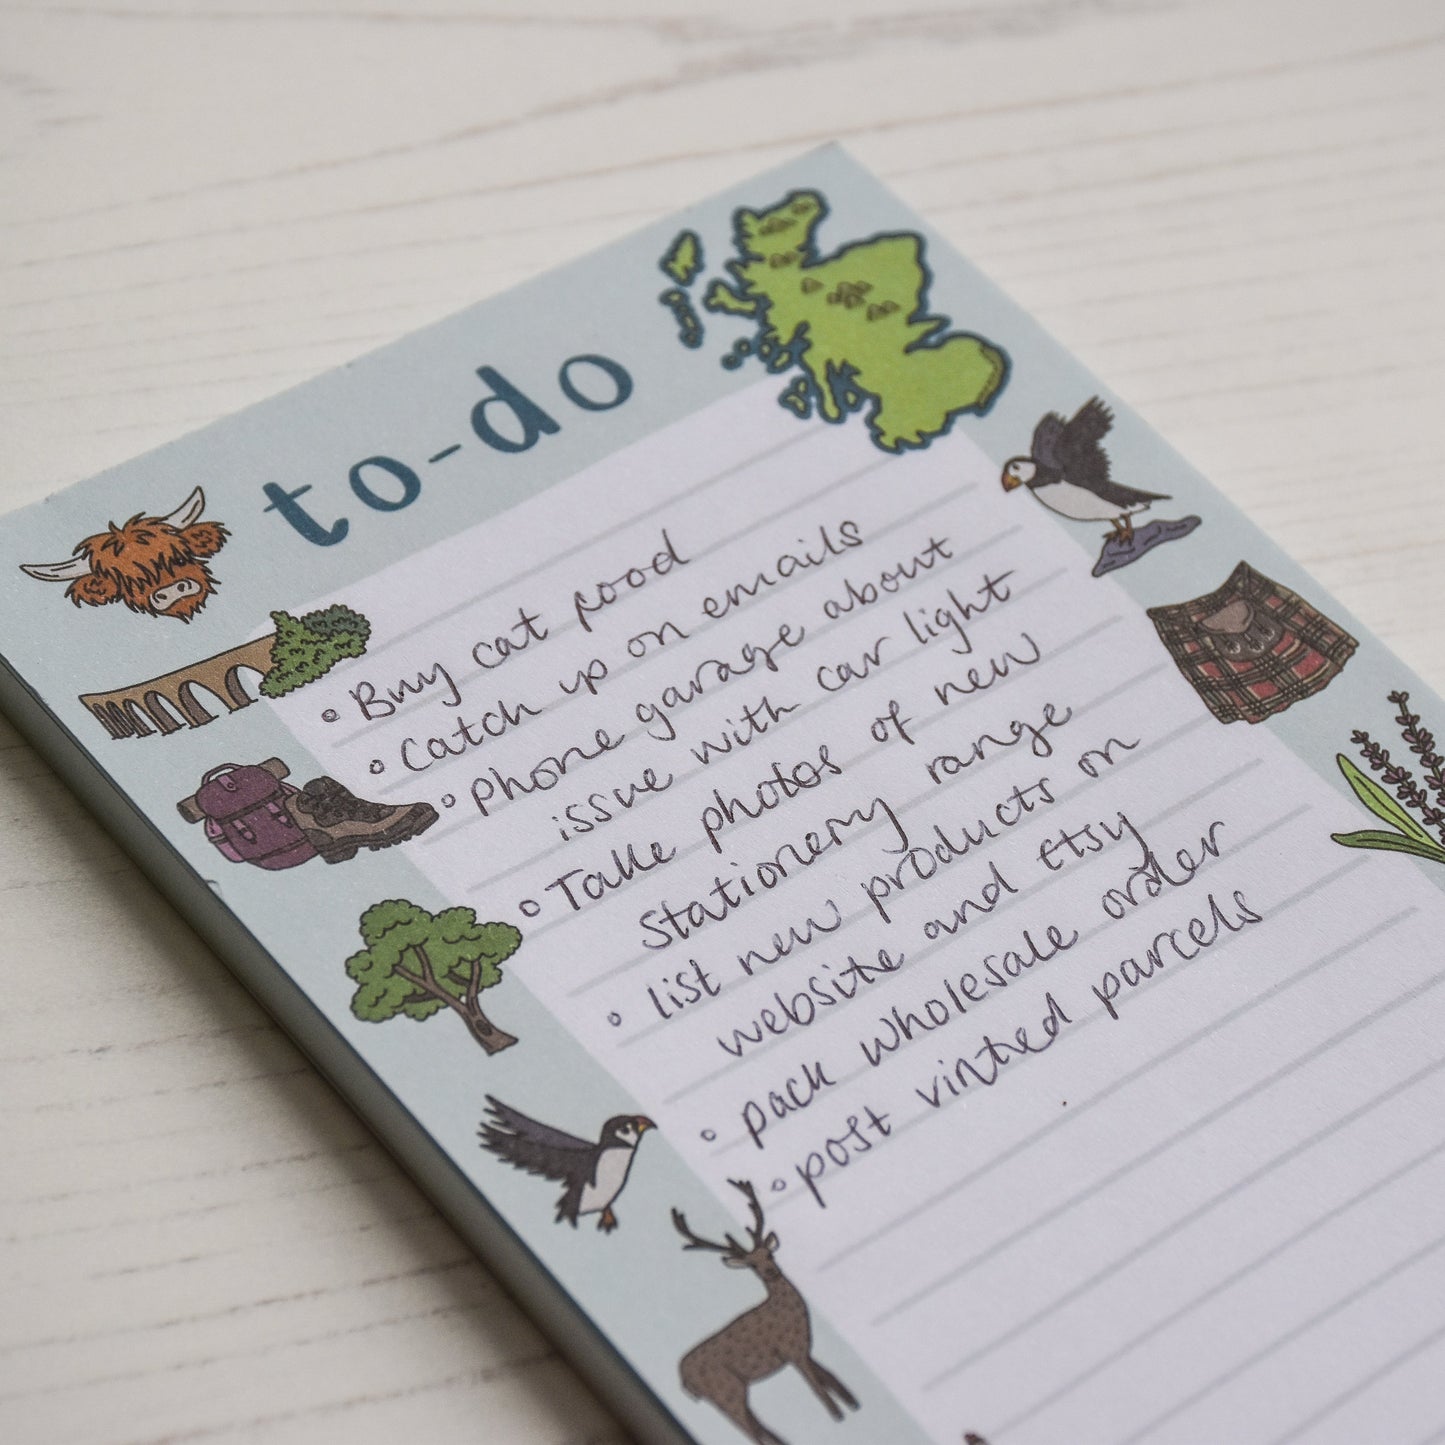 to-do
• Buy cat food
• Catch up on emails
• Phone garage about
issue with car light
• Take photos of new
Stationery range
• list new products on
website and etsy
• pack wholesale order
• post vinted parcels